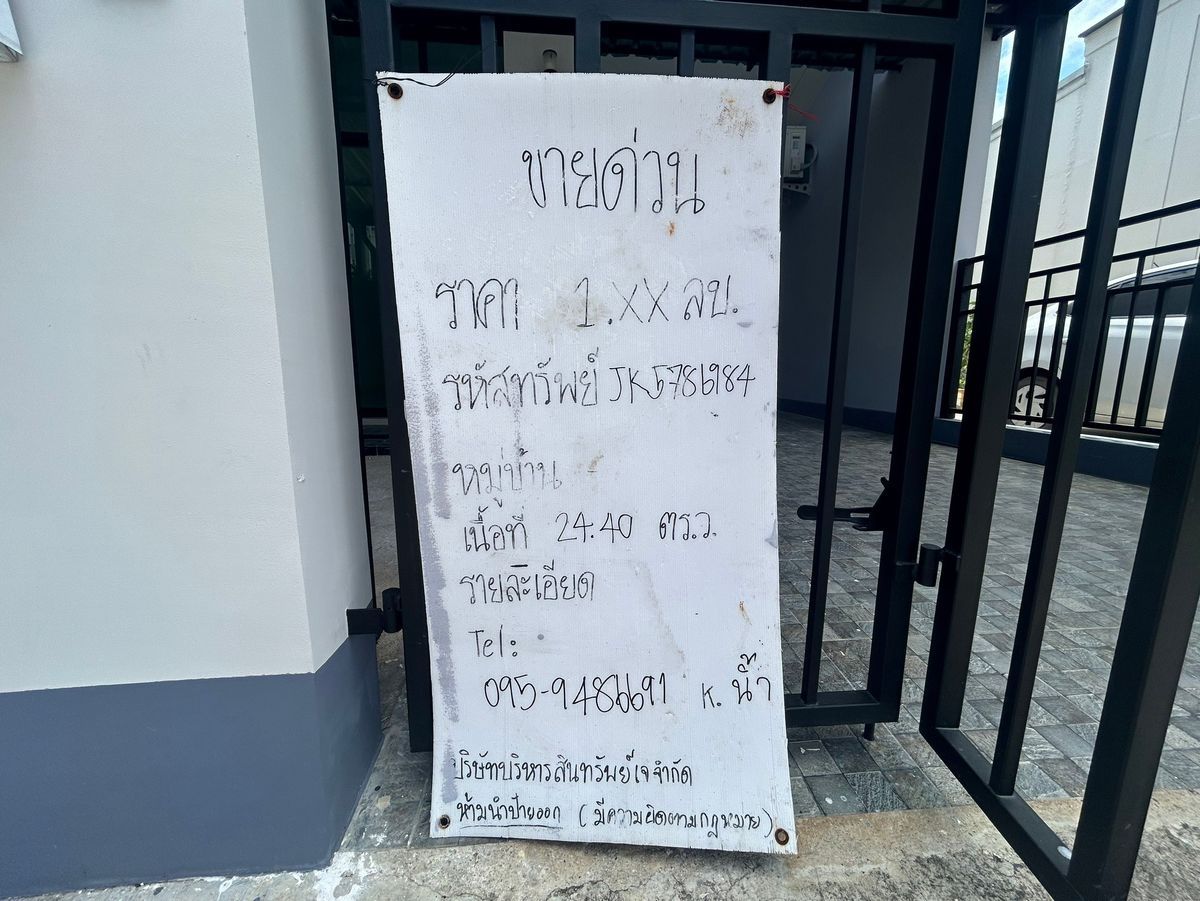 ขายด่วน
ราคา 1.XX ลบ.
รหัสทรัพย์ JK5786984
หมู่บ้าน
เนื้อที่ 24.40 ตร.ว.
รายละเอียด
Tel:
095-9486691 K. น้ำ
บริษัทบริหารสินทรัพย์เจจำกัด
ห้ามนำป้ายออก (มีความผิดตามกฎหมาย)